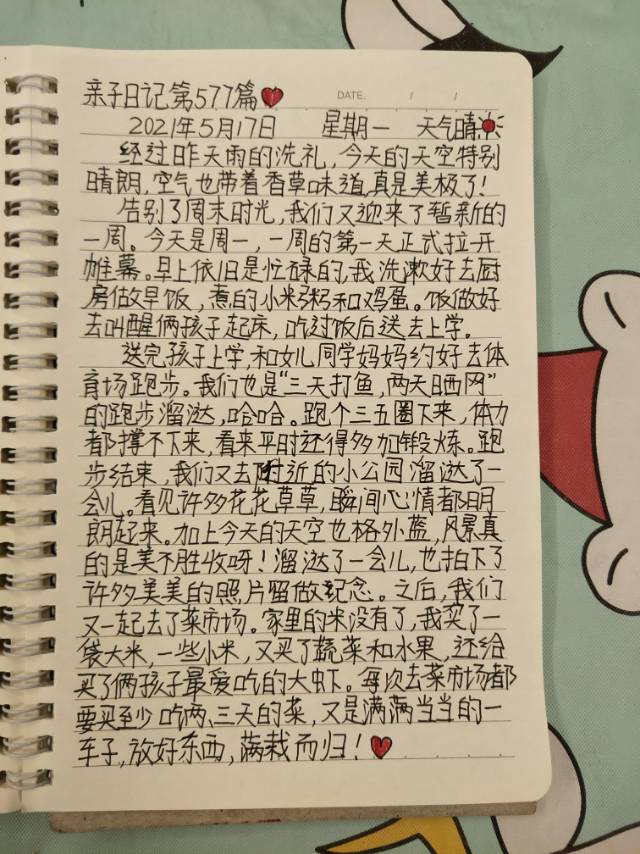 亲子日记第577篇
DATE. / /
2021年5月17日 星期一 天气晴
经过昨天雨的洗礼，今天的天空特别
晴朗，空气也带着香草味道，真是美极了！
告别了周末时光，我们又迎来了暂新的
一周。今天是周一，一周的第一天正式拉开
帷幕。早上依旧是忙碌的，我洗漱好去厨
房做早饭，煮的小米粥和鸡蛋。饭做好
去叫醒俩孩子起床，吃过饭后送去上学。
送完孩子上学，和女儿同学妈妈约好去体
育场跑步。我们也是“三天打鱼，两天晒网”
的跑步溜达，哈哈。跑个三五圈下来，体力
都撑不下来，看来平时还得多加锻炼。跑
步结束，我们又去附近的小公园溜达了一
会儿。看见许多花花草草，瞬间心情都明
朗起来。加上今天的天空也格外蓝，风景真
的是美不胜收呀！溜达了一会儿，也拍下了
许多美美的照片留做纪念。之后，我们
又一起去了菜市场。家里的米没有了，我买了一
袋大米，一些小米，又买了蔬菜和水果，还给
买了俩孩子最爱吃的大虾。每次去菜市场都
要买至少吃两、三天的菜，又是满满当当的一
车子，放好东西，满栽而归！